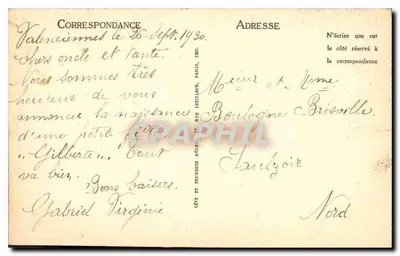 CORRESPONDANCE
Valenciennes le 26 Sept. 1930.
Chers oncle et tante.
Nous sommes très
heureux de vous
annoncer la naissance
d'une petite
"Gilberte" tout
va bien.
Bons baisers.
Gabriel Virginie
ADRESSE
N'écrire que sur
le côté réservé à
la correspondance
Mieur et Mme
Boulogne Brisville
Saulzoir
Nord
CPAPHIL